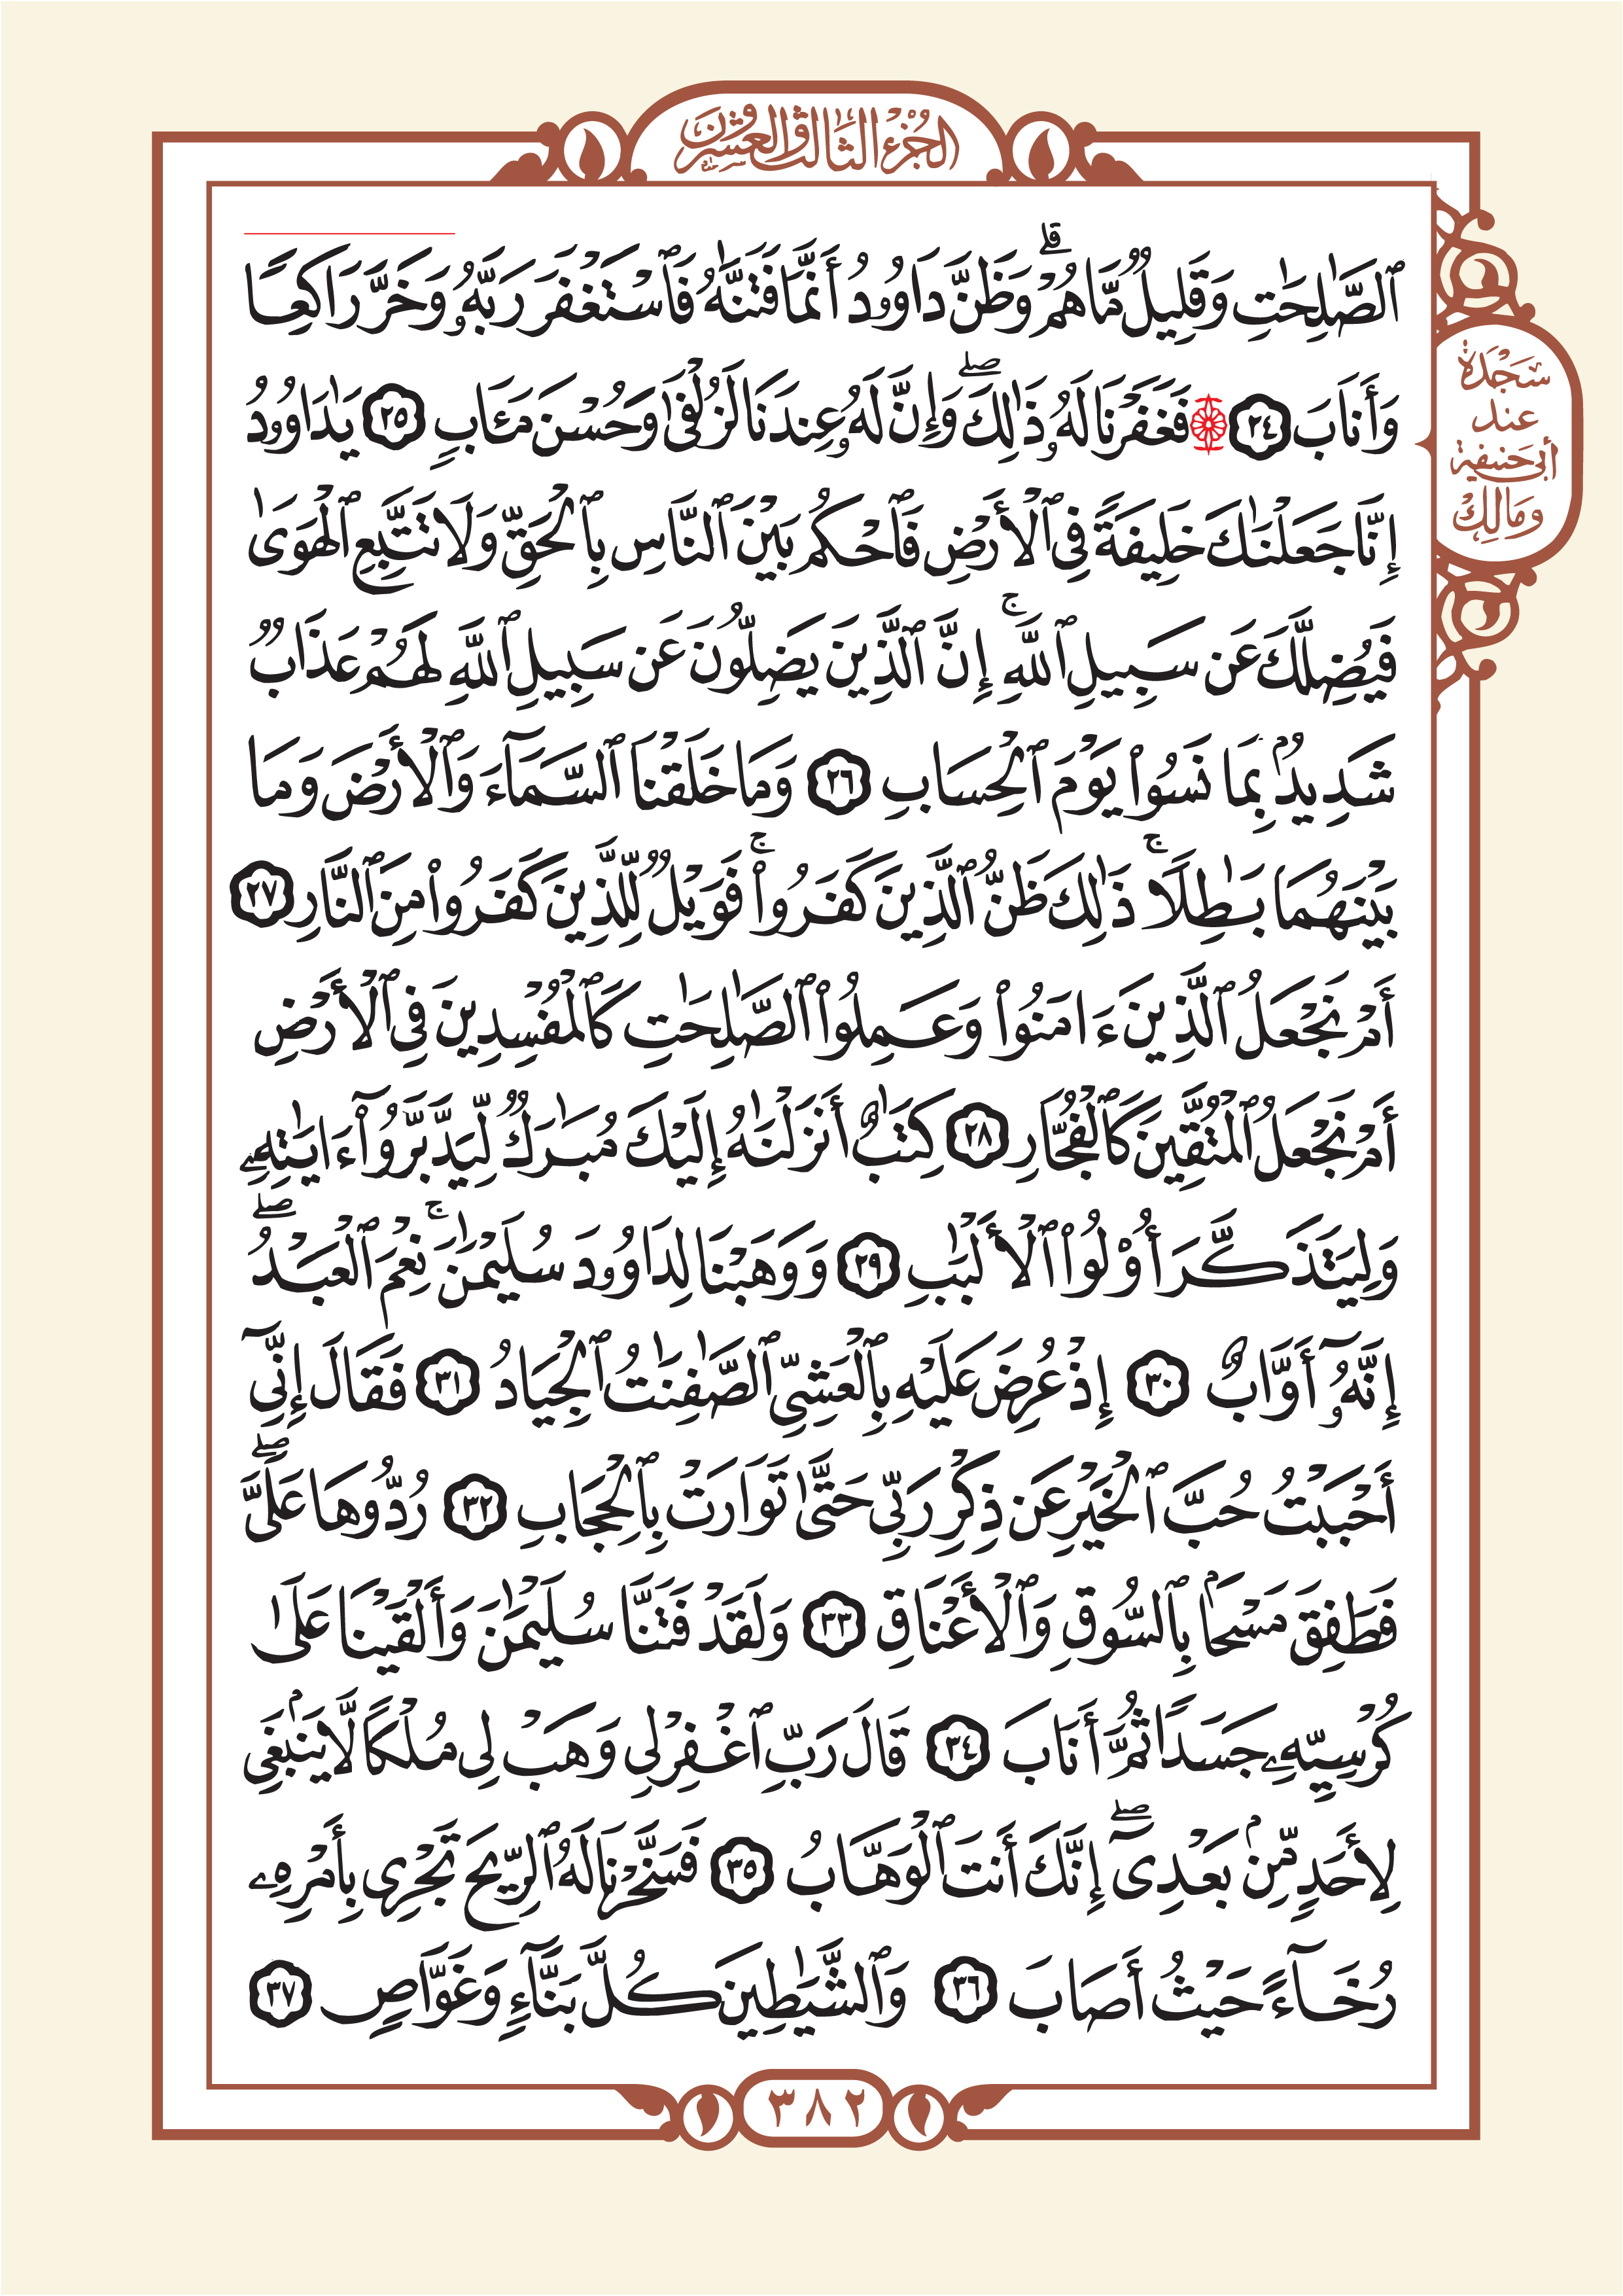 الجُزْءُ الثَّالِثُ وَالعِشْرُونَ
ٱلصَّٰلِحَٰتِ وَقَلِيلٌ مَّا هُمْ ۗ وَظَنَّ دَاوُۥدُ أَنَّمَا فَتَنَّٰهُ فَٱسْتَغْفَرَ رَبَّهُۥ وَخَرَّ رَاكِعًا
وَأَنَابَ ٢٤ فَغَفَرْنَا لَهُۥ ذَٰلِكَ ۖ وَإِنَّ لَهُۥ عِندَنَا لَزُلْفَىٰ وَحُسْنَ مَـَٔابٍ ٢٥ يَٰدَاوُۥدُ
إِنَّا جَعَلْنَٰكَ خَلِيفَةً فِى ٱلْأَرْضِ فَٱحْكُم بَيْنَ ٱلنَّاسِ بِٱلْحَقِّ وَلَا تَتَّبِعِ ٱلْهَوَىٰ
فَيُضِلَّكَ عَن سَبِيلِ ٱللَّهِ ۚ إِنَّ ٱلَّذِينَ يَضِلُّونَ عَن سَبِيلِ ٱللَّهِ لَهُمْ عَذَابٌ
شَدِيدٌۢ بِمَا نَسُوا۟ يَوْمَ ٱلْحِسَابِ ٢٦ وَمَا خَلَقْنَا ٱلسَّمَآءَ وَٱلْأَرْضَ وَمَا
بَيْنَهُمَا بَٰطِلًا ۚ ذَٰلِكَ ظَنُّ ٱلَّذِينَ كَفَرُوا۟ ۚ فَوَيْلٌ لِّلَّذِينَ كَفَرُوا۟ مِنَ ٱلنَّارِ ٢٧
أَمْ نَجْعَلُ ٱلَّذِينَ ءَامَنُوا۟ وَعَمِلُوا۟ ٱلصَّٰلِحَٰتِ كَٱلْمُفْسِدِينَ فِى ٱلْأَرْضِ
أَمْ نَجْعَلُ ٱلْمُتَّقِينَ كَٱلْفُجَّارِ ٢٨ كِتَٰبٌ أَنزَلْنَٰهُ إِلَيْكَ مُبَٰرَكٌ لِّيَدَّبَّرُوٓا۟ ءَايَٰتِهِۦ
وَلِيَتَذَكَّرَ أُو۟لُوا۟ ٱلْأَلْبَٰبِ ٢٩ وَوَهَبْنَا لِدَاوُۥدَ سُلَيْمَٰنَ ۚ نِعْمَ ٱلْعَبْدُ ۖ
إِنَّهُۥٓ أَوَّابٌ ٣٠ إِذْ عُرِضَ عَلَيْهِ بِٱلْعَشِىِّ ٱلصَّٰفِنَٰتُ ٱلْجِيَادُ ٣١ فَقَالَ إِنِّىٓ
أَحْبَبْتُ حُبَّ ٱلْخَيْرِ عَن ذِكْرِ رَبِّى حَتَّىٰ تَوَارَتْ بِٱلْحِجَابِ ٣٢ رُدُّوهَا عَلَىَّ ۖ
فَطَفِقَ مَسْحًۢا بِٱلسُّوقِ وَٱلْأَعْنَاقِ ٣٣ وَلَقَدْ فَتَنَّا سُلَيْمَٰنَ وَأَلْقَيْنَا عَلَىٰ
كُرْسِيِّهِۦ جَسَدًا ثُمَّ أَنَابَ ٣٤ قَالَ رَبِّ ٱغْفِرْ لِى وَهَبْ لِى مُلْكًا لَّا يَنۢبَغِى
لِأَحَدٍ مِّنۢ بَعْدِىٓ ۖ إِنَّكَ أَنتَ ٱلْوَهَّابُ ٣٥ فَسَخَّرْنَا لَهُ ٱلرِّيحَ تَجْرِى بِأَمْرِهِۦ
رُخَآءً حَيْثُ أَصَابَ ٣٦ وَٱلشَّيَٰطِينَ كُلَّ بَنَّآءٍ وَغَوَّاصٍ ٣٧
سَجْدَةٌ
عند
أبي حَنِيفة
وَمَالِكْ
٣٨٢